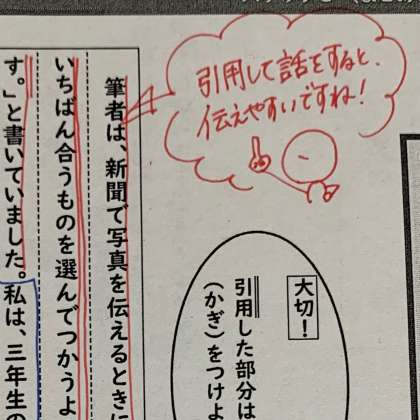 引用して話をすると、
伝えやすいですね!
大切!
引用した部分は
(かぎ)をつけよ
筆者は、新聞で写真を伝えるときに
いちばん合うものを選んでつかうよ
す。」と書いていました。私は、三年生の